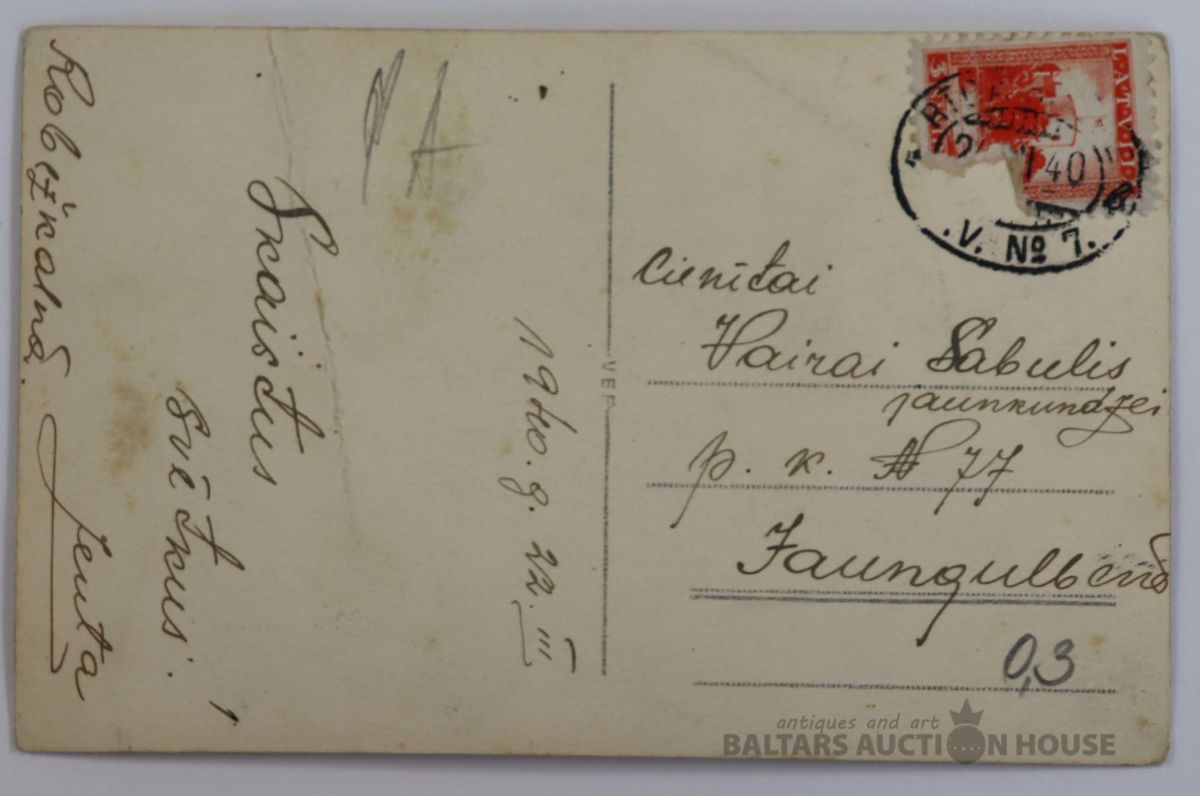 Skaistus
svētkus.
1940. g. 22. III
Robežkalnā.
Jenta
A
VEF
LATVIJA
3
40
V. № 7.
Cienītai
Vairai Sabulis
jaunkundzei
p. k. № 77
Jaungulbenē
0,3
antiques and art
BALTARS AUCTION HOUSE